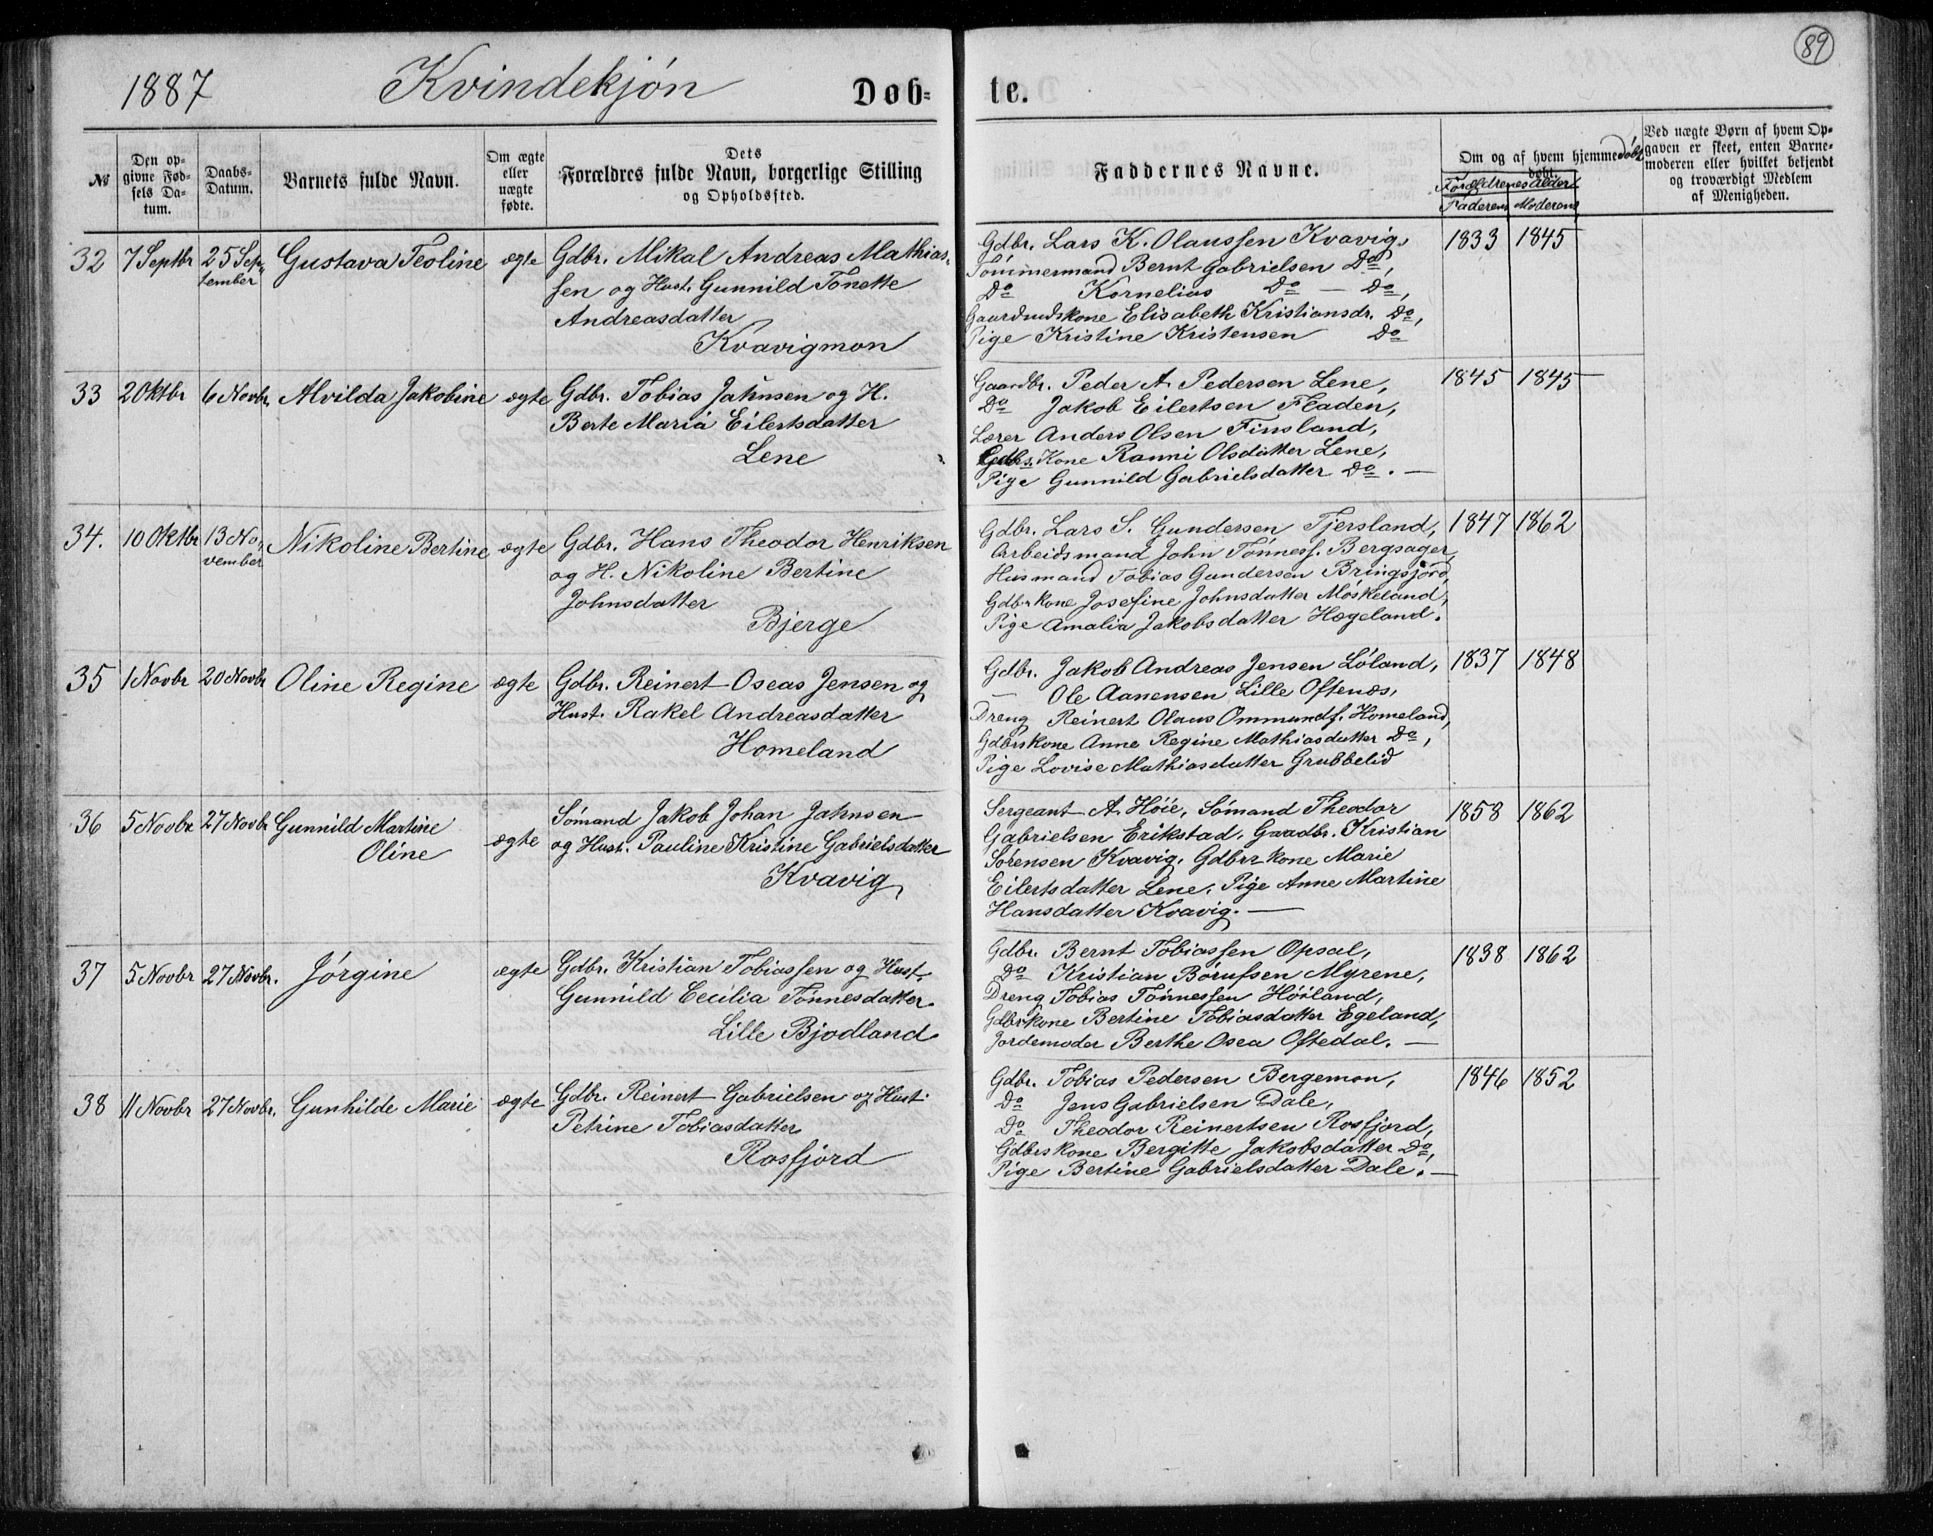 89
1887 Kvindekjøn Døb- te.
№
Den op-
givne Fød-
sels Da-
tum.
Daabs-
Datum.
Barnets fulde Navn.
Om ægte
eller
uægte
fødte.
Dets
Forældres fulde Navn, borgerlige Stilling
og Opholdssted.
Faddernes Navne.
Om og af hvem hjemmedøbt
døbt.
Forældrenes alder
Faderens Moderens
Ved uægte Børn af hvem Op-
gaven er skeet, enten Barne-
moderen eller hvilket bekjendt
og troværdigt Medlem
af Menigheden.
32 7 Septbr 25 Sep-
tember
Gustava Teoline ægte
Gdbr. Mikal Andreas Mathias-
sen og Hust. Gunnild Tonette
Andreasdatter
Kvavigmon
Gdbr. Lars K. Olaussen Kvavig,
Tømmermand Bernt Gabrielsen Do,
Do Kornelius Do — Do,
Gaardmdskone Elisabeth Kristiansdr. Do,
Pige Kristine Kristensen Do
1833 1845
33 2 Oktbr 6 Novbr. Alvilda Jakobine ægte
Gdbr. Tobias Jahnsen og H.
Berte Maria Eilertsdatter
Lene
Gaardbr. Peder A. Pedersen Lene,
Do Jakob Eilertsen Fladen,
Lærer Anders Olsen Finsland,
Gdbrs. Kone Ranni Olsdatter Lene,
Pige Gunnild Gabrielsdatter Do. —
1845 1845
34. 10 Oktbr 13 No-
vember
Nikoline Bertine ægte
Gdbr. Hans Theodor Henriksen
og H. Nikoline Bertine
Johnsdatter
Bjerge
Gdbr. Lars S. Gundersen, Tjersland,
Arbeidsmand John Tønness. Bergsager,
Husmand Tobias Gundersen Bringsjord,
Gdbrkone Josefine Johnsdatter Møskeland,
Pige Amalia Jakobsdatter Hægeland.
1847 1862
35 1 Novbr 20 Novbr Oline Regine ægte
Gdbr. Reinert Oseas Jensen og
Hust. Rakel Andreasdatter
Homeland
Gdbr. Jakob Andreas Jensen Løland,
— Ole Aanensen Lille Oftenæs,
Dreng Reinert Olaus Ommunds. Homeland,
Gdbrskone Anne Regine Mathiasdatter Do,
Pige Lovise Mathiasdatter Grubbelid
1837 1848
36 5 Novbr 27 Novbr Gunnild Martine
Oline
ægte
Sømand Jakob Johan Jahnsen
og Hust. Pauline Kristine Gabrielsdatter
Kvavig
Sergeant A. Høie, Sømand Theodor
Gabrielsen Erikstad, Gaardbr. Kristian
Sørensen Kvavig, Gdbrskone Marie
Eilertsdatter Lene, Pige Anne Martine
Hansdatter Kvavig. —
1858 1862
37 5 Novbr 27 Novbr. Jørgine ægte
Gdbr. Kristian Tobiassen og Hust.
Gunnild Cecilia Tønnesdatter
Lille Bjodland
Gdbr. Bernt Tobiassen Opsal,
Do Kristian Børufsen Myrene,
Dreng Tobias Tønnessen Høiland,
Gdbrskone Bertine Tobiasdatter Egeland,
Jordemoder Berthe Osea Oftedal. —
1838 1862
38 11 Novbr 27 Novbr. Gunhilde Marie ægte
Gdbr. Reinert Gabrielsen og Hust.
Petrine Tobiasdatter
Rosfjord
Gdbr. Tobias Pedersen Bergemon,
Do Jens Gabrielsen Dale,
Do Theodor Reinertsen Rosfjord,
Gdbrskone Bergitte Jakobsdatter Do,
Pige Bertine Gabrielsdatter Dale. —
1846 1852